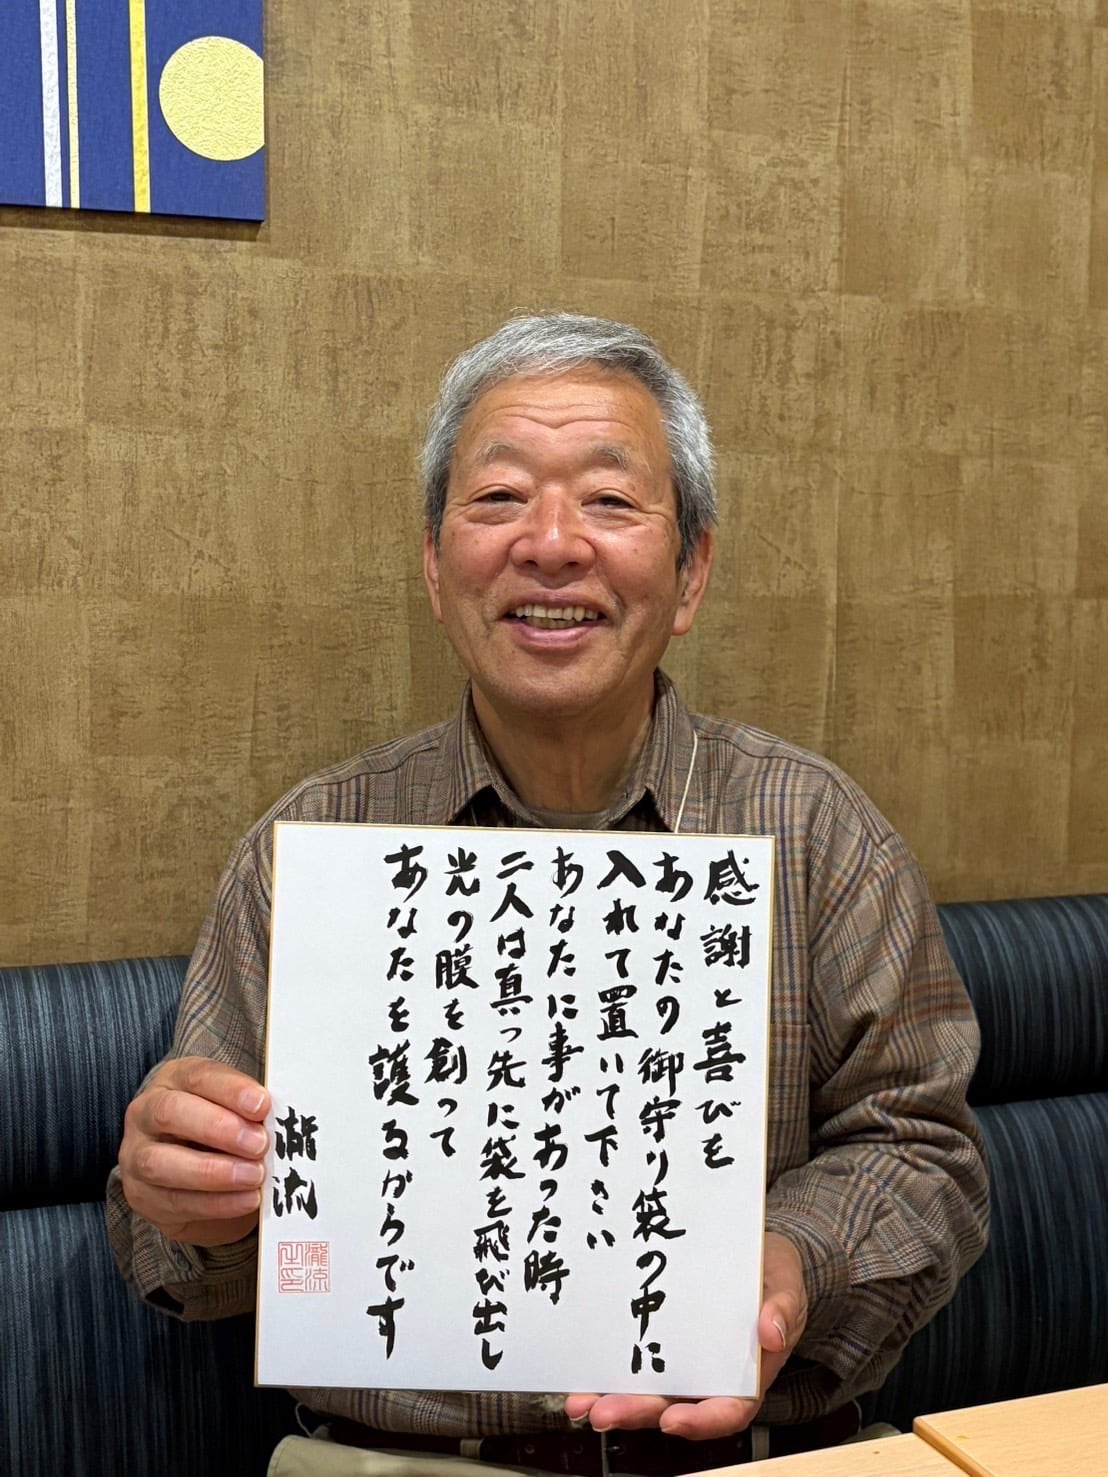 感謝と喜びを
あなたの御守り袋の中に
入れて置いて下さい
あなたに事があった時
二人は真っ先に袋を飛び出し
光の膜を創って
あなたを護るからです
瀧流
瀧流之印